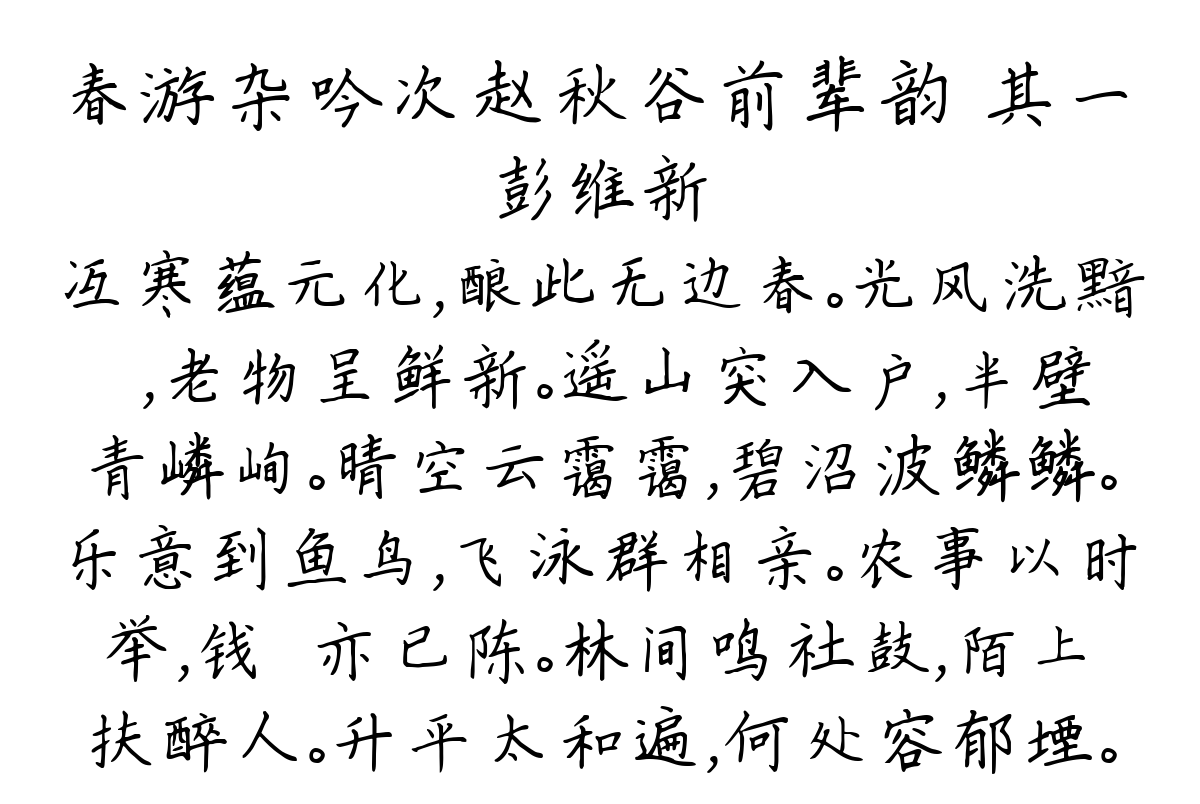 春游杂吟次赵秋谷前辈韵 其一
彭维新
冱寒蕴元化,酿此无边春。光风洗黯
,老物呈鲜新。遥山突入户,半壁
青嶙峋。晴空云霭霭,碧沼波鳞鳞。
乐意到鱼鸟,飞泳群相亲。农事以时
举,钱 亦已陈。林间鸣社鼓,陌上
扶醉人。升平太和遍,何处容郁堙。